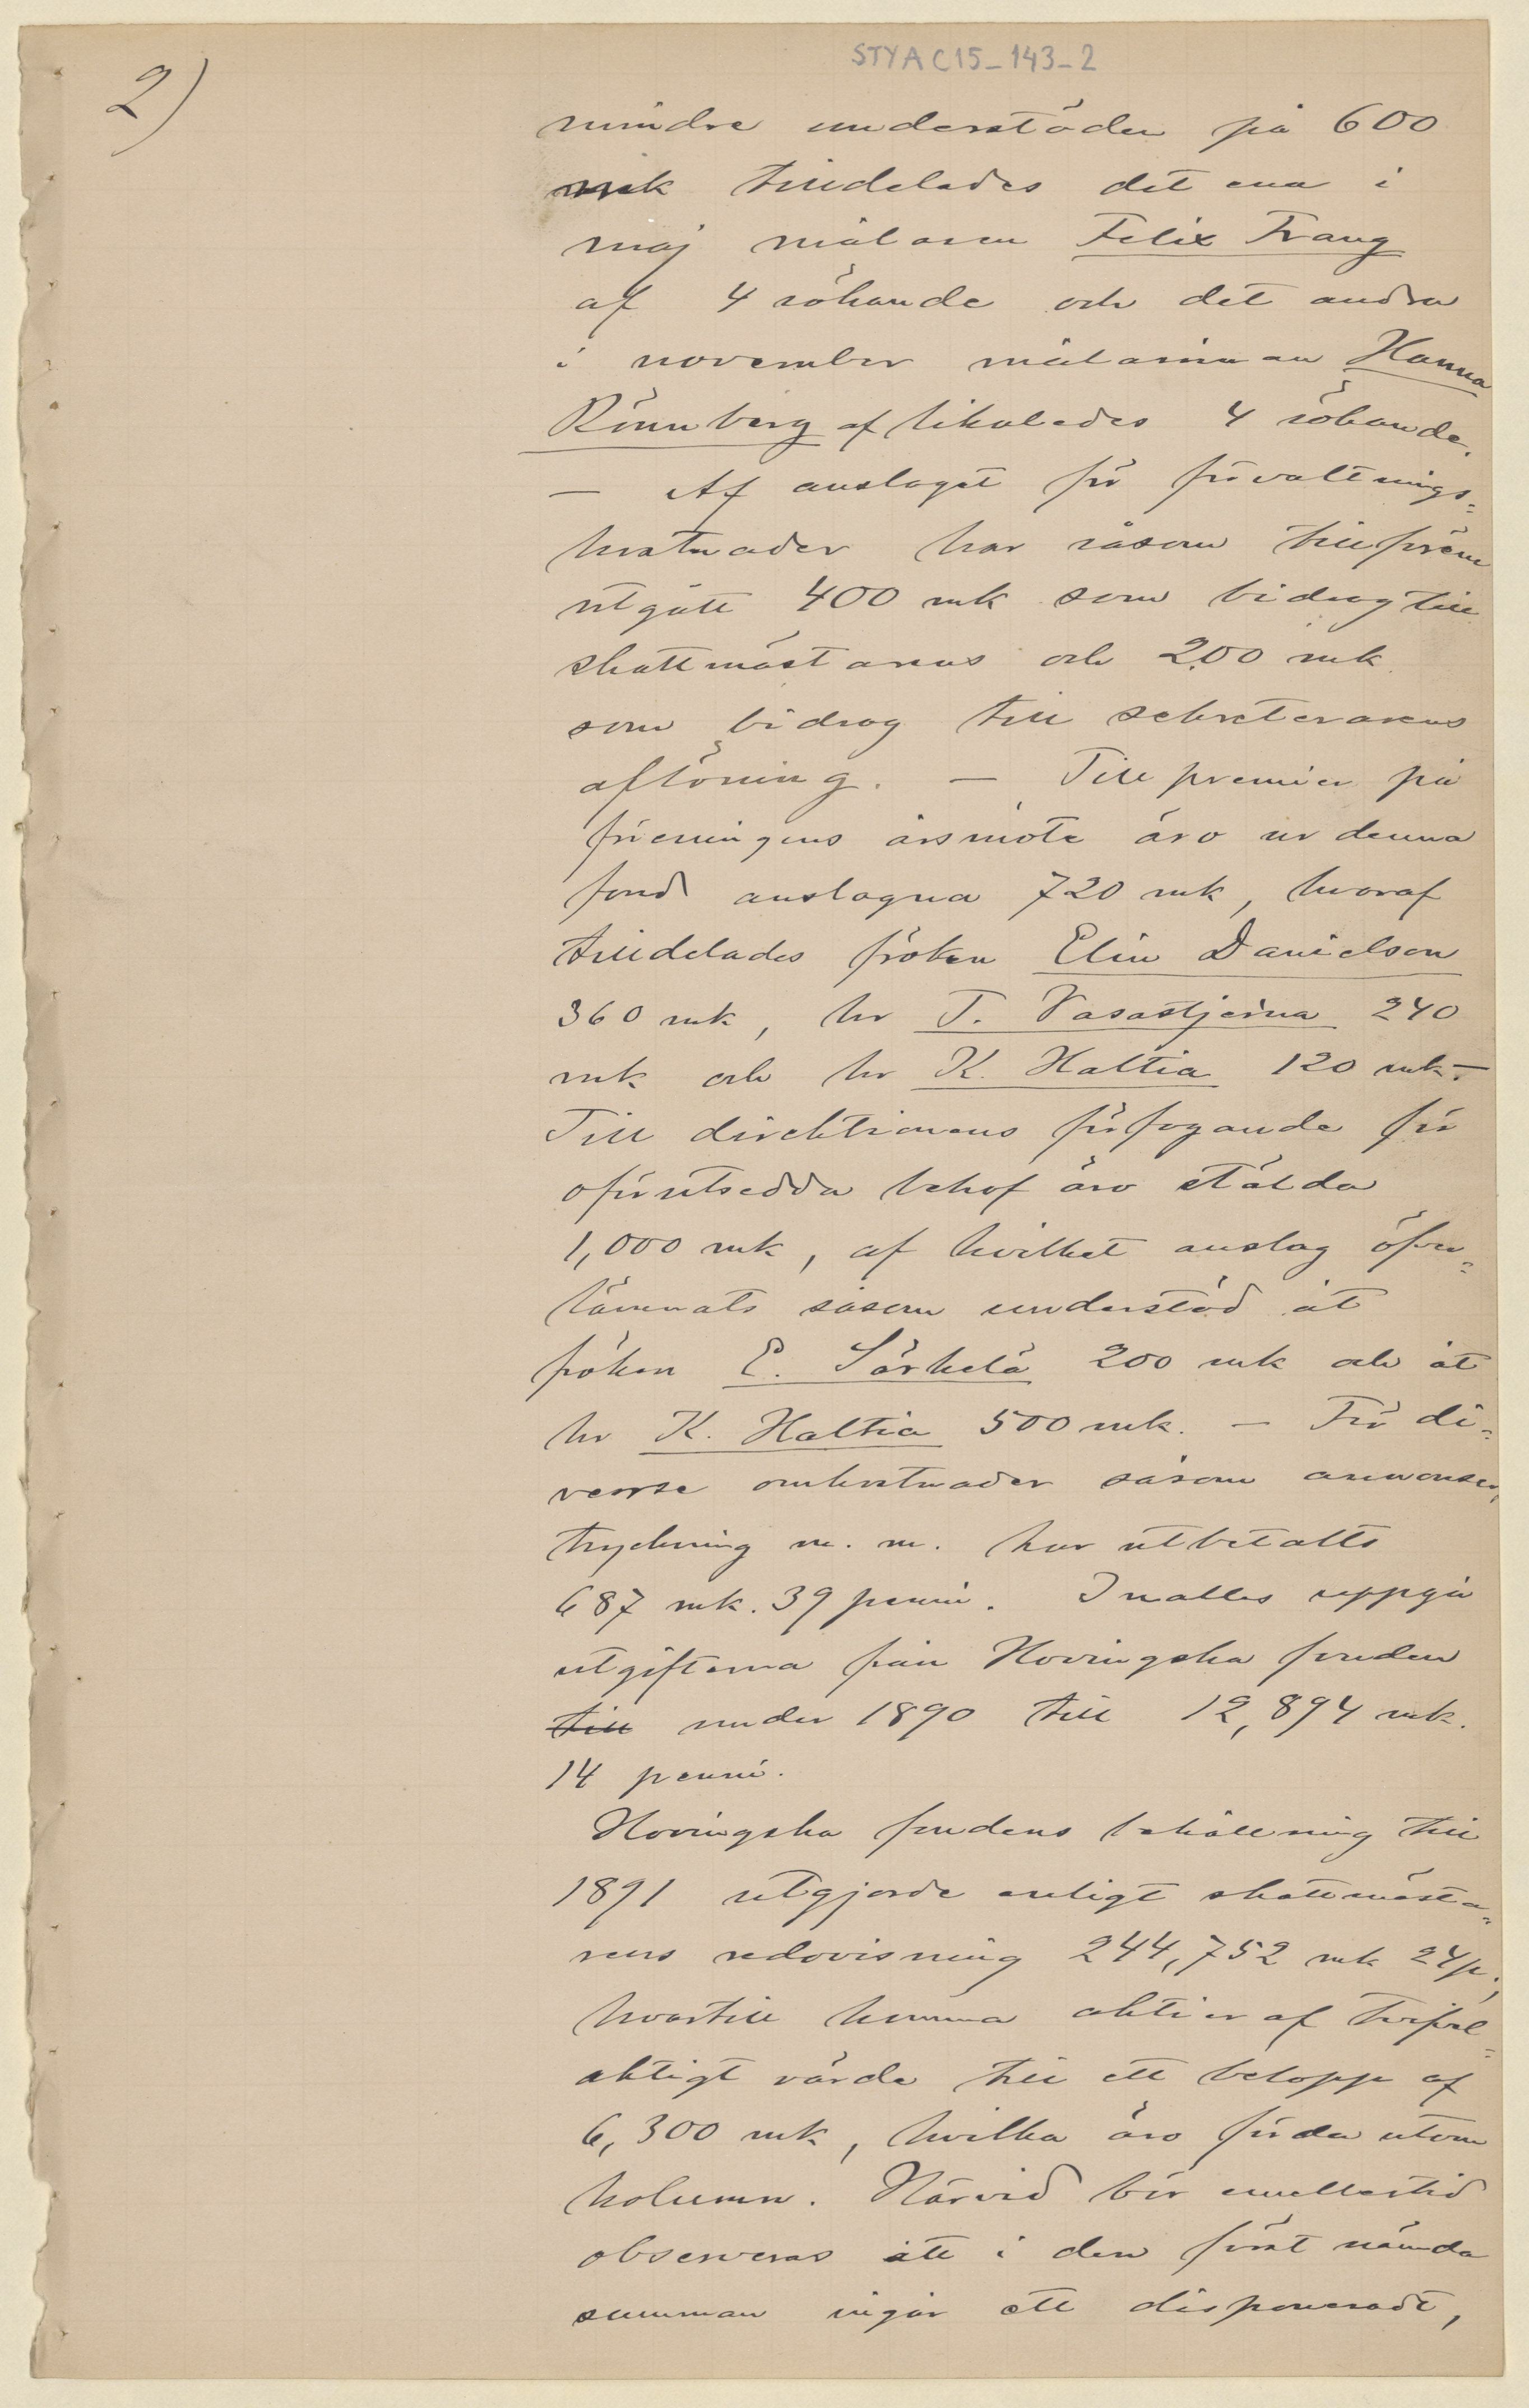 STYA C15_143_2
2)
mindre understöden på 600
mk tilldelades det ena i
maj målaren Felix Frang
af 4 sökande och det andra
i november målarinnan Hanna
Rönnberg af likaledes 4 sökande.
— Af anslaget för förvaltnings-
kostnader har såsom tillförene
utgått 400 mk som bidrag till
skattmästarens och 200 mk
som bidrag till sekreterarens
aflöning. — Till premier på
föreningens årsmöte äro ur denna
fond anslagna 720 mk, hvaraf
tilldelades fröken Elin Danielson
360 mk, hr T. Vasastjerna 240
mk och hr K. Haltia 120 mk. —
Till direktionens förfogande för
oförutsedda behof äro stälda
1,000 mk, af hvilket anslag öfver-
lämnats såsom understöd åt
fröken E. Särkelä 200 mk och åt
hr K. Haltia 500 mk. — För di-
verse omkostnader såsom annonser,
tryckning m. m. har utbetalts
687 mk. 39 penni. Inalles uppgå
utgifterna från Hovingska fonden
till under 1890 till 12,894 mk.
14 penni.
Hovingska fondens behållning till
1891 utgjorde enligt skattmästa-
rens redovisning 244,752 mk 24 p.,
hvartill komma aktier af tvifvel-
aktigt värde till ett belopp af
6,300 mk, hvilka äro förda utom
kolumn. Härvid bör emellertid
observeras att i den först nämda
summan ingår ett disponeradt,